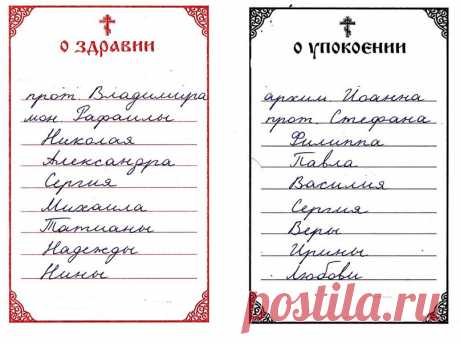 О ЗДРАВИИ
прот. Владимира
мон. Рафаилы
Николая
Александра
Сергия
Михаила
Татианы
Надежды
Нины
О УПОКОЕНИИ
архим. Иоанна
прот. Стефана
Филиппа
Павла
Василия
Сергия
Веры
Ирины
Любови
postila.ru